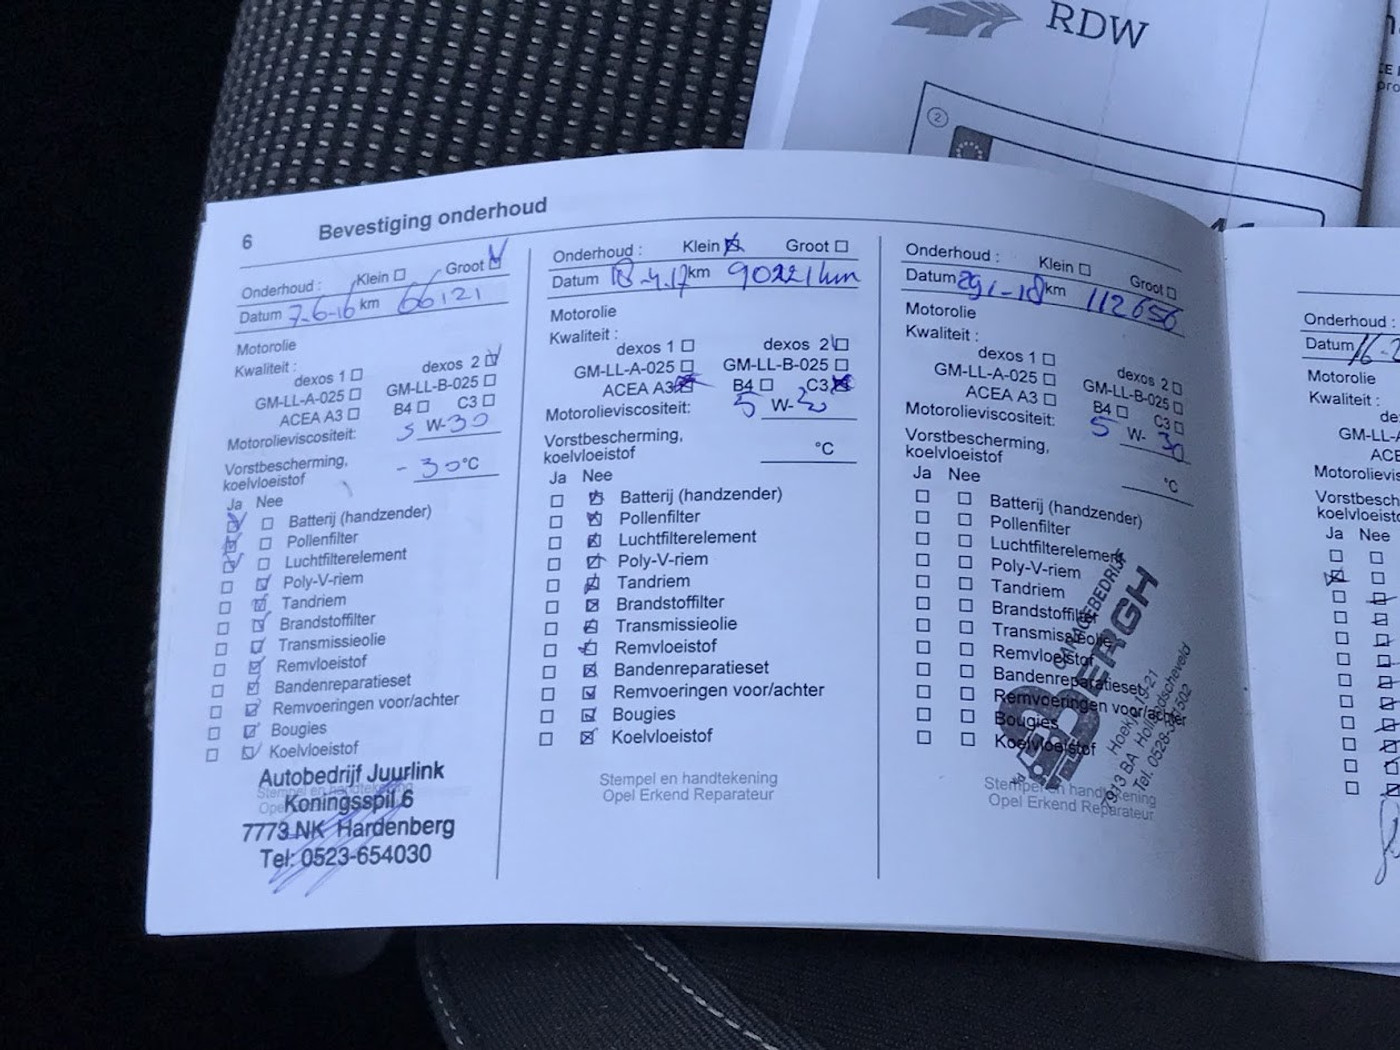 RDW
2
6 Bevestiging onderhoud
Onderhoud : Klein Groot
Datum 7-6-16 km 66121
Motorolie
Kwaliteit :
dexos 1 dexos 2
GM-LL-A-025 GM-LL-B-025
ACEA A3 B4 C3
Motorolieviscositeit: 5 W-30
Vorstbescherming,
koelvloeistof -30°C
Ja Nee
Batterij (handzender)
Pollenfilter
Luchtfilterelement
Poly-V-riem
Tandriem
Brandstoffilter
Transmissieolie
Remvloeistof
Bandenreparatieset
Remvoeringen voor/achter
Bougies
Koelvloeistof
Autobedrijf Juurlink
Koningsspil 6
7773 NK Hardenberg
Tel: 0523-654030
Onderhoud : Klein Groot
Datum 18-4-17 km 90221 km
Motorolie
Kwaliteit :
dexos 1 dexos 2
GM-LL-A-025 GM-LL-B-025
ACEA A3 B4 C3
Motorolieviscositeit: 5 W-30
Vorstbescherming,
koelvloeistof °C
Ja Nee
Batterij (handzender)
Pollenfilter
Luchtfilterelement
Poly-V-riem
Tandriem
Brandstoffilter
Transmissieolie
Remvloeistof
Bandenreparatieset
Remvoeringen voor/achter
Bougies
Koelvloeistof
Stempel en handtekening
Opel Erkend Reparateur
Onderhoud : Klein Groot
Datum 29-1-18 km 112656
Motorolie
Kwaliteit :
dexos 1 dexos 2
GM-LL-A-025 GM-LL-B-025
ACEA A3 B4 C3
Motorolieviscositeit: 5 W-30
Vorstbescherming,
koelvloeistof °C
Ja Nee
Batterij (handzender)
Pollenfilter
Luchtfilterelement
Poly-V-riem
Tandriem
Brandstoffilter
Transmissieolie
Remvloeistof
Bandenreparatieset
Remvoeringen voor/achter
Bougies
Koelvloeistof
Stempel en handtekening
Opel Erkend Reparateur
GARAGEBEDRIJF
BERGH
7913 BA Hollandscheveld
Onderhoud :
Datum
Motorolie
Kwaliteit :
GM-LL-
Ja Nee